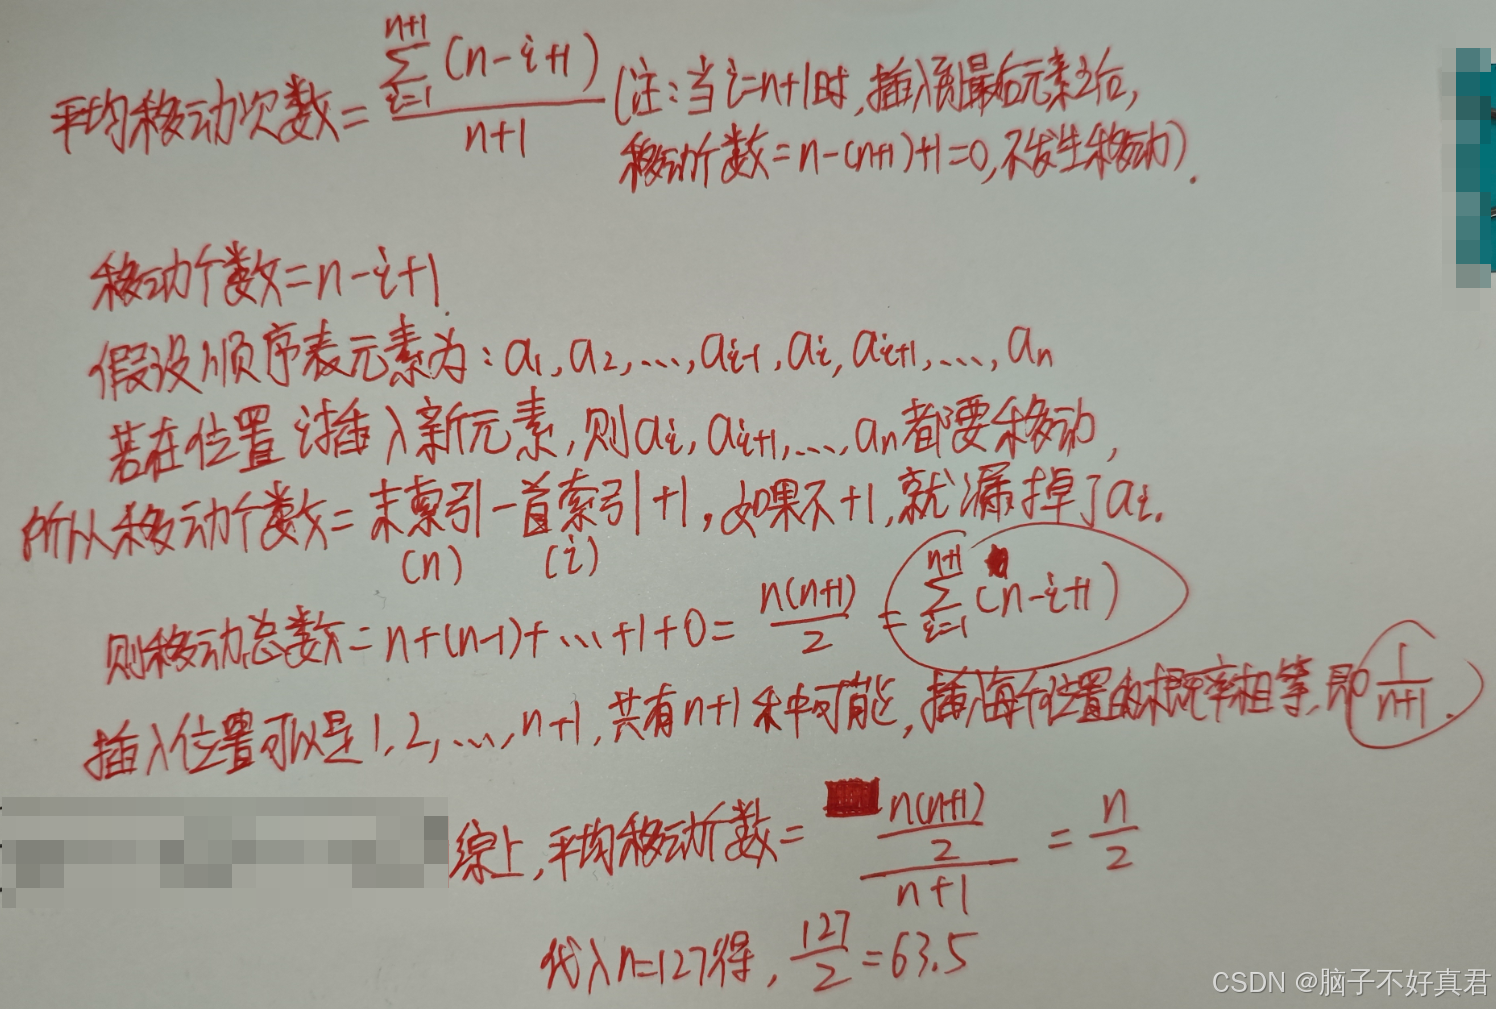 平均移动次数 = \frac{\sum_{i=1}^{n+1}(n-i+1)}{n+1} (注:当i=n+1时,插入到最后元素之后,
移动个数=n-(n+1)+1=0,不发生移动).
移动个数=n-i+1.
假设顺序表元素为:a₁,a₂,...,aᵢ₋₁,aᵢ,aᵢ₊₁,...,aₙ
若在位置i插入新元素,则aᵢ,aᵢ₊₁,...,aₙ都要移动,
所以移动个数=末索引-首索引+1,如果不+1,就漏掉了aᵢ.
(n) (i)
则移动总数=n+(n-1)+...+1+0= \frac{n(n+1)}{2} = \sum_{i=1}^{n+1}(n-i+1)
插入位置可以是1,2,...,n+1,共有n+1种可能,插入每个位置的概率相等,即\frac{1}{n+1}.
综上,平均移动个数= \frac{\frac{n(n+1)}{2}}{n+1} = \frac{n}{2}
代入n=127得, \frac{127}{2} =63.5
CSDN @脑子不好真君